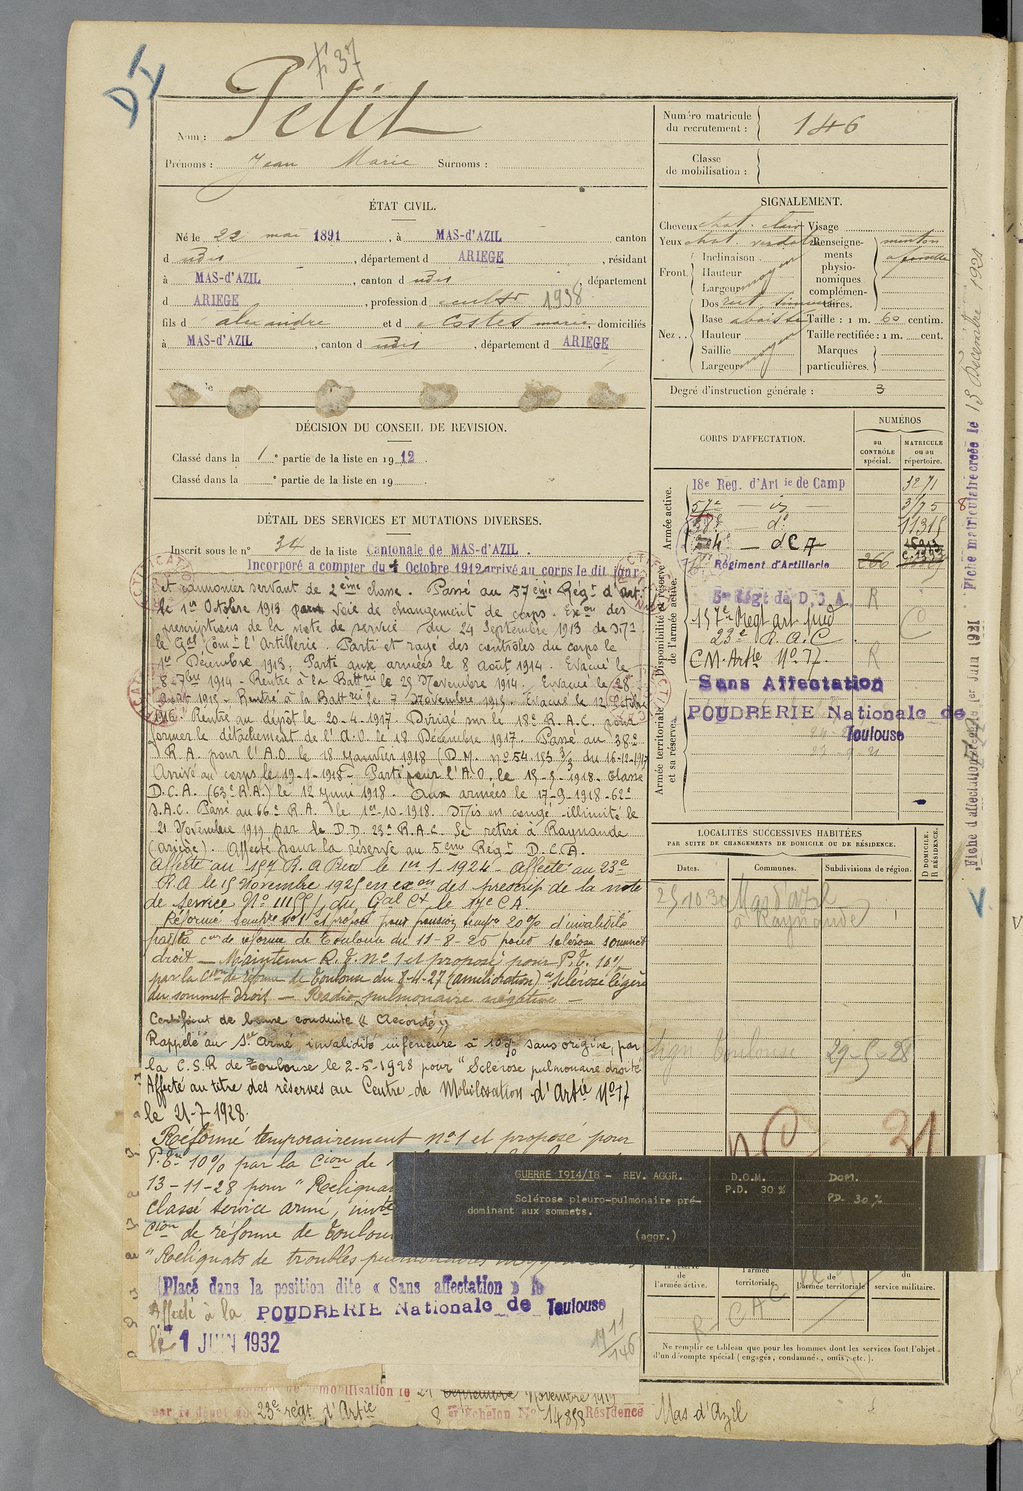 F 37
Nom : Petit
Prénoms : Jean Marie Surnoms :
Numéro matricule
du recrutement : 146
Classe
de mobilisation :
ÉTAT CIVIL.
Né le 22 mai 1891 , à MAS-d'AZIL canton
d udit , département d ARIEGE , résidant
à MAS-d'AZIL , canton d udit , département
d ARIEGE , profession d cultr 1938
fils d' alexandre et d e Costes marie, domiciliés
à MAS-d'AZIL , canton d udit , département d ARIEGE
SIGNALEMENT.
Cheveux chat. clair
Yeux chat. verdatre
Front.
Inclinaison
Hauteur moyen
Largeur
Nez..
Dos rect. sinueux
Base abaissée
Hauteur
Saillie moyen
Largeur
Visage
Renseigne-
ments
physio-
nomiques
complémen-
taires.
menton
à fossette
Taille : 1 m. 60 centim.
Taille rectifiée : 1 m. cent.
Marques
particulières.
Degré d'instruction générale : 3
DÉCISION DU CONSEIL DE REVISION.
Classé dans la 1e partie de la liste en 1912 .
Classé dans la e partie de la liste en 19 .
DÉTAIL DES SERVICES ET MUTATIONS DIVERSES.
Inscrit sous le n° 34 de la liste Cantonale de MAS-d'AZIL .
Incorporé a compter du 1 Octobre 1912 arrivé au corps le dit jour
et canonnier servant de 2ème classe. Passé au 57ème Régt d'art.
le 1er Octobre 1913 par voie de changement de corps. Exon des
prescriptions de la note de service du 24 Septembre 1913 de Mr
le Gal Comt l'Artillerie. Parti et rayé des contrôles du corps le
1er Décembre 1913. Parti aux armées le 8 août 1914. Evacué le
8-7bre 1914 - Rentré à la Battrie le 25 Novembre 1914. Evacué le 28
Août 1915 - Rentré à la Battrie le 7 Novembre 1915. Evacué le 12 Octobre
1916. Rentré au dépôt le 20-4-1917. Dirigé sur le 18e R.A.C. pour
former le détachement de l'A.O. le 18 Décembre 1917. Passé au 38e
R.A. pour l'A.O. le 18 Janvier 1918 (D.M. n° 54.193 3/3 du 16-12-1917
Arrivé au corps le 19-1-1918 - Parti pour l'A.O. le 15-3-1918. Classé
D.C.A. (63e R.A.) le 12 Juin 1918. Aux armées le 17-9-1918 - 62e
D.A.C. Passé au 66e R.A. le 1er-10-1918. Mis en congé illimité le
21 Novembre 1919 par le D.D. 23e R.A.C. Se retire à Raynaude
(ariège). Affecté pour la réserve au 5ème Régt D.C.A.
Affecté au 157 R.A Pied le 1er-1-1924 - Affecté au 23e
R.A le 15 Novembre 1925 en exon des prescrip de la note
de service N° 11155/1 du Gal Ct le 17e CA.
Réformé temporre n°1 et proposé pour pension tempre 20% d'invalidité
par la Con de réforme de Toulouse du 11-8-26 pour sclérose sommet
droit - Maintenu R.T. n°1 et proposé pour P.T. 10%
par la Con de réforme de Toulouse du 7-4-27 (amélioration) "Sclérose légère
du sommet droit - Radio pulmonaire négative -
Certificat de bonne conduite "Accordé"
Rappelé au Sce Armé, invalidité inférieure à 10% sans origine, par
la C.S.R de Toulouse le 2-5-1928 pour "Sclérose pulmonaire droite
Affecté au titre des réserves au Centre de Mobilisation d'Artie N°17
le 21-7-1928.
Réformé temporairement n°1 et proposé pour
P.Tre 10% par la Cion de
13-11-28 pour "Reliquat
classé service armé, inv
Cion de réforme de Toulou
"Reliquats de troubles pulmonaires
Placé dans la position dite « Sans affectation » le
Affecté à la POUDRERIE Nationale de Toulouse
le 1 JUIN 1932
1911
/146
CORPS D'AFFECTATION.
NUMÉROS
au
CONTRÔLE
spécial.
MATRICULE
ou au
répertoire.
Armée active.
18e Reg. d'Art ie de Camp 3271
57e - is - 3/75
38e - do 11315
- DCA
Régiment d'Artillerie 266
Disponibilité et réserve
de l'armée active.
5e Régt de D.C.A R
157e Regt art pied
23e R.A.C
CM.Artie N°17. R
Sans Affectation
Armée territoriale
et sa réserve.
POUDRERIE Nationale de
Toulouse
LOCALITÉS SUCCESSIVES HABITÉES
PAR SUITE DE CHANGEMENTS DE DOMICILE OU DE RÉSIDENCE.
Dates. Communes. Subdivisions de région. D DOMICILE. R RÉSIDENCE.
25.10.30 Mas d'azil
à Raynaude
Toulouse 29-5-28
GUERRE 1914/18 - REV. AGGR.
Sclérose pleuro-pulmonaire pré-
dominant aux sommets.
(aggr.)
D.O.M.
P.D. 30 %
DOM.
PD. 30 %
la réserve
de l'armée active.
l'armée
territoriale.
de
l'armée territoriale
du
service militaire.
R CAC
Ne remplir ce tableau que pour les hommes dont les services font l'objet
d'un décompte spécial (engagés, condamnés, omis, etc.).
mobilisation le 21 Septembre Novembre 1919
par le dépôt du 23e régt d'Artie 8 e Echelon N° 14893 Résidence Mas d'Azil
Fiche d'affectation créée le 1er Juin 1921 Fiche matriculaire créée le 13 Décembre 1921